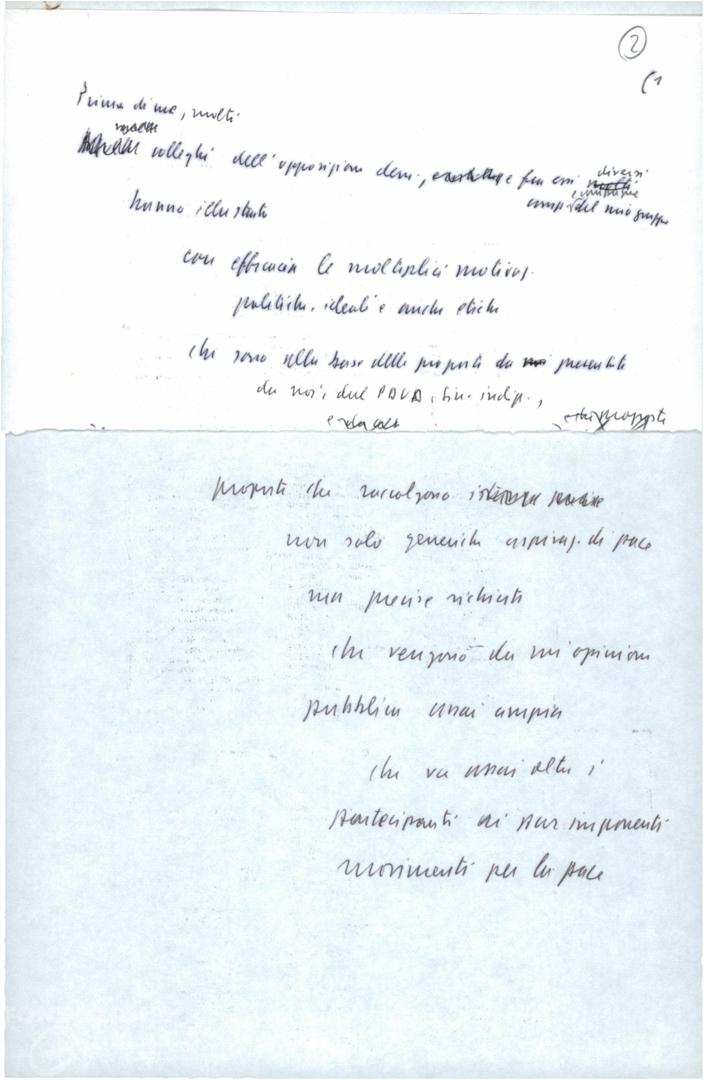 2
(1
Prima di me, molti
molti
colleghi dell'opposizione dem., e fra essi diversi
compagni del mio gruppo
hanno illustrato
con efficacia le molteplici motivaz.
politiche, ideali e anche etiche
che sono alla base delle proposte da noi presentate
da noi, dal PDUP, sin. indip.,
proposte che raccolgono
non solo generiche aspiraz. di pace
ma precise richieste
che vengono da un'opinione
pubblica assai ampia
che va assai oltre i
partecipanti ai pur imponenti
movimenti per la pace